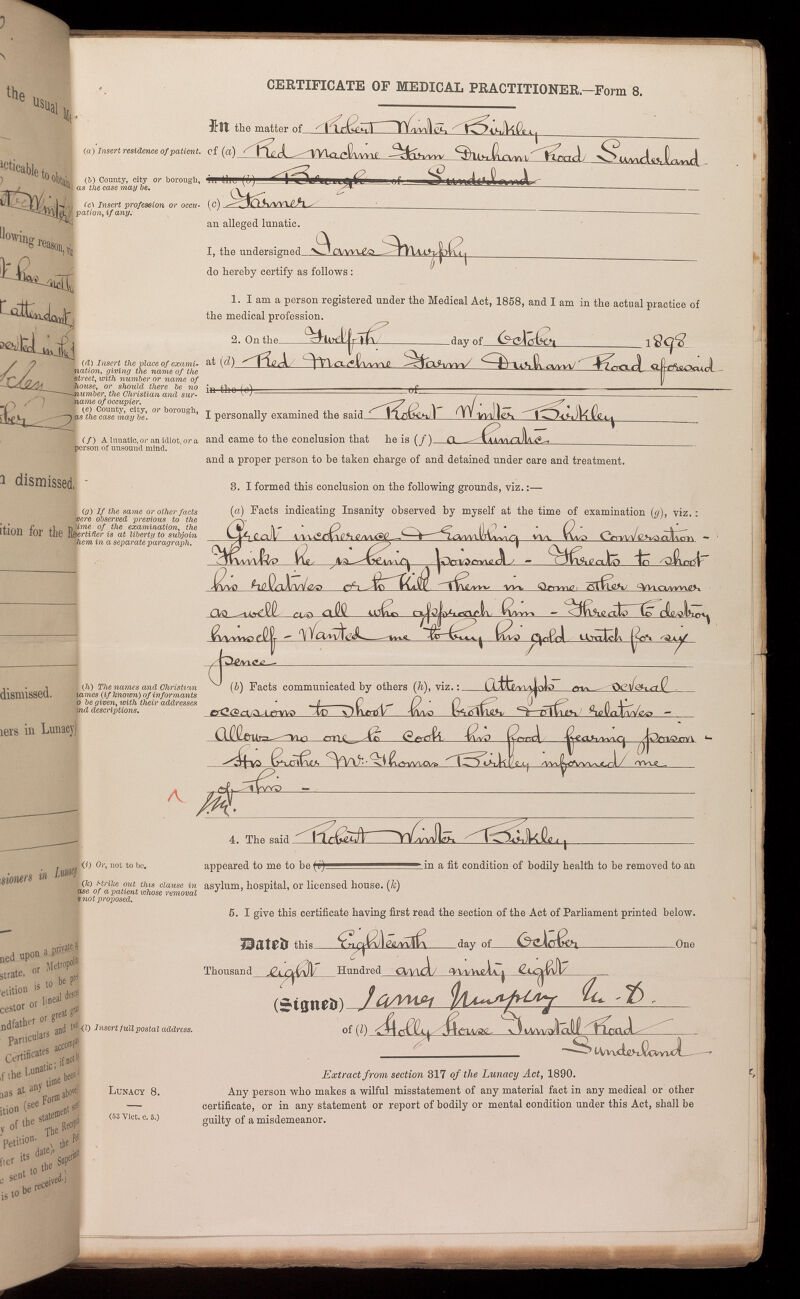 CERTIFICATE OF MEDICAL PRACTITIONER.—Form 8.
In the matter of Robert Winter Birkley
(a) Insert residence of patient. of (a) Red Machine Farm Durham Road Sunderland
(b) County, city or borough, as the case may be.
in the (b) Borough of Sunderland
(c) Insert profession or occupation, if any.
(c) Farmer
an alleged lunatic.
I, the undersigned James Murphy
do hereby certify as follows:
1. I am a person registered under the Medical Act, 1858, and I am in the actual practice of
the medical profession.
2. On the Twelfth day of October 1898
(d) Insert the place of examination, giving the name of the street, with number or name of house, or should there be no number, the Christian and surname of occupier.
at (d) Red Machine Farm Durham Road aforesaid
in the (e) of
(e) County, city, or borough, as the case may be.
I personally examined the said Robert Winter Birkley
(f) A lunatic, or an idiot, or a person of unsound mind.
and came to the conclusion that he is (f) a lunatic
and a proper person to be taken charge of and detained under care and treatment.
3. I formed this conclusion on the following grounds, viz.:—
(g) If the same or other facts were observed previous to the time of the examination, the certifier is at liberty to subjoin them in a separate paragraph.
(a) Facts indicating Insanity observed by myself at the time of examination (g), viz.:
Great incoherence & rambling in his conversation -
Thinks he is being poisoned - Threats to shoot
his relatives or to kill them in some other manner
as well as all who approach him - Threats to destroy
himself - Wanted me to buy his gold watch for six
pence
(h) The names and Christian names (if known) of informants to be given, with their addresses and descriptions.
(b) Facts communicated by others (h), viz.: Attempts on several
occasions to shoot his brother & other relatives -
Allows no one to cook his food fearing poison -
His brother Mr. Thomas Birkley informed me
of this -
4. The said Robert Winter Birkley
(i) Or, not to be.
appeared to me to be (i) in a fit condition of bodily health to be removed to an
(k) Strike out this clause in case of a patient whose removal is not proposed.
asylum, hospital, or licensed house. (k)
5. I give this certificate having first read the section of the Act of Parliament printed below.
Dated this Eighteenth day of October One
Thousand eight Hundred and ninety eight
(Signed) James Murphy M.D.
(l) Insert full postal address.
of (l) Holly House Tunstall Road
Sunderland
Extract from section 317 of the Lunacy Act, 1890.
LUNACY 8.
(53 Vict. c. 5.)
Any person who makes a wilful misstatement of any material fact in any medical or other
certificate, or in any statement or report of bodily or mental condition under this Act, shall be
guilty of a misdemeanor.
the usual
dismissed.
dismissed.